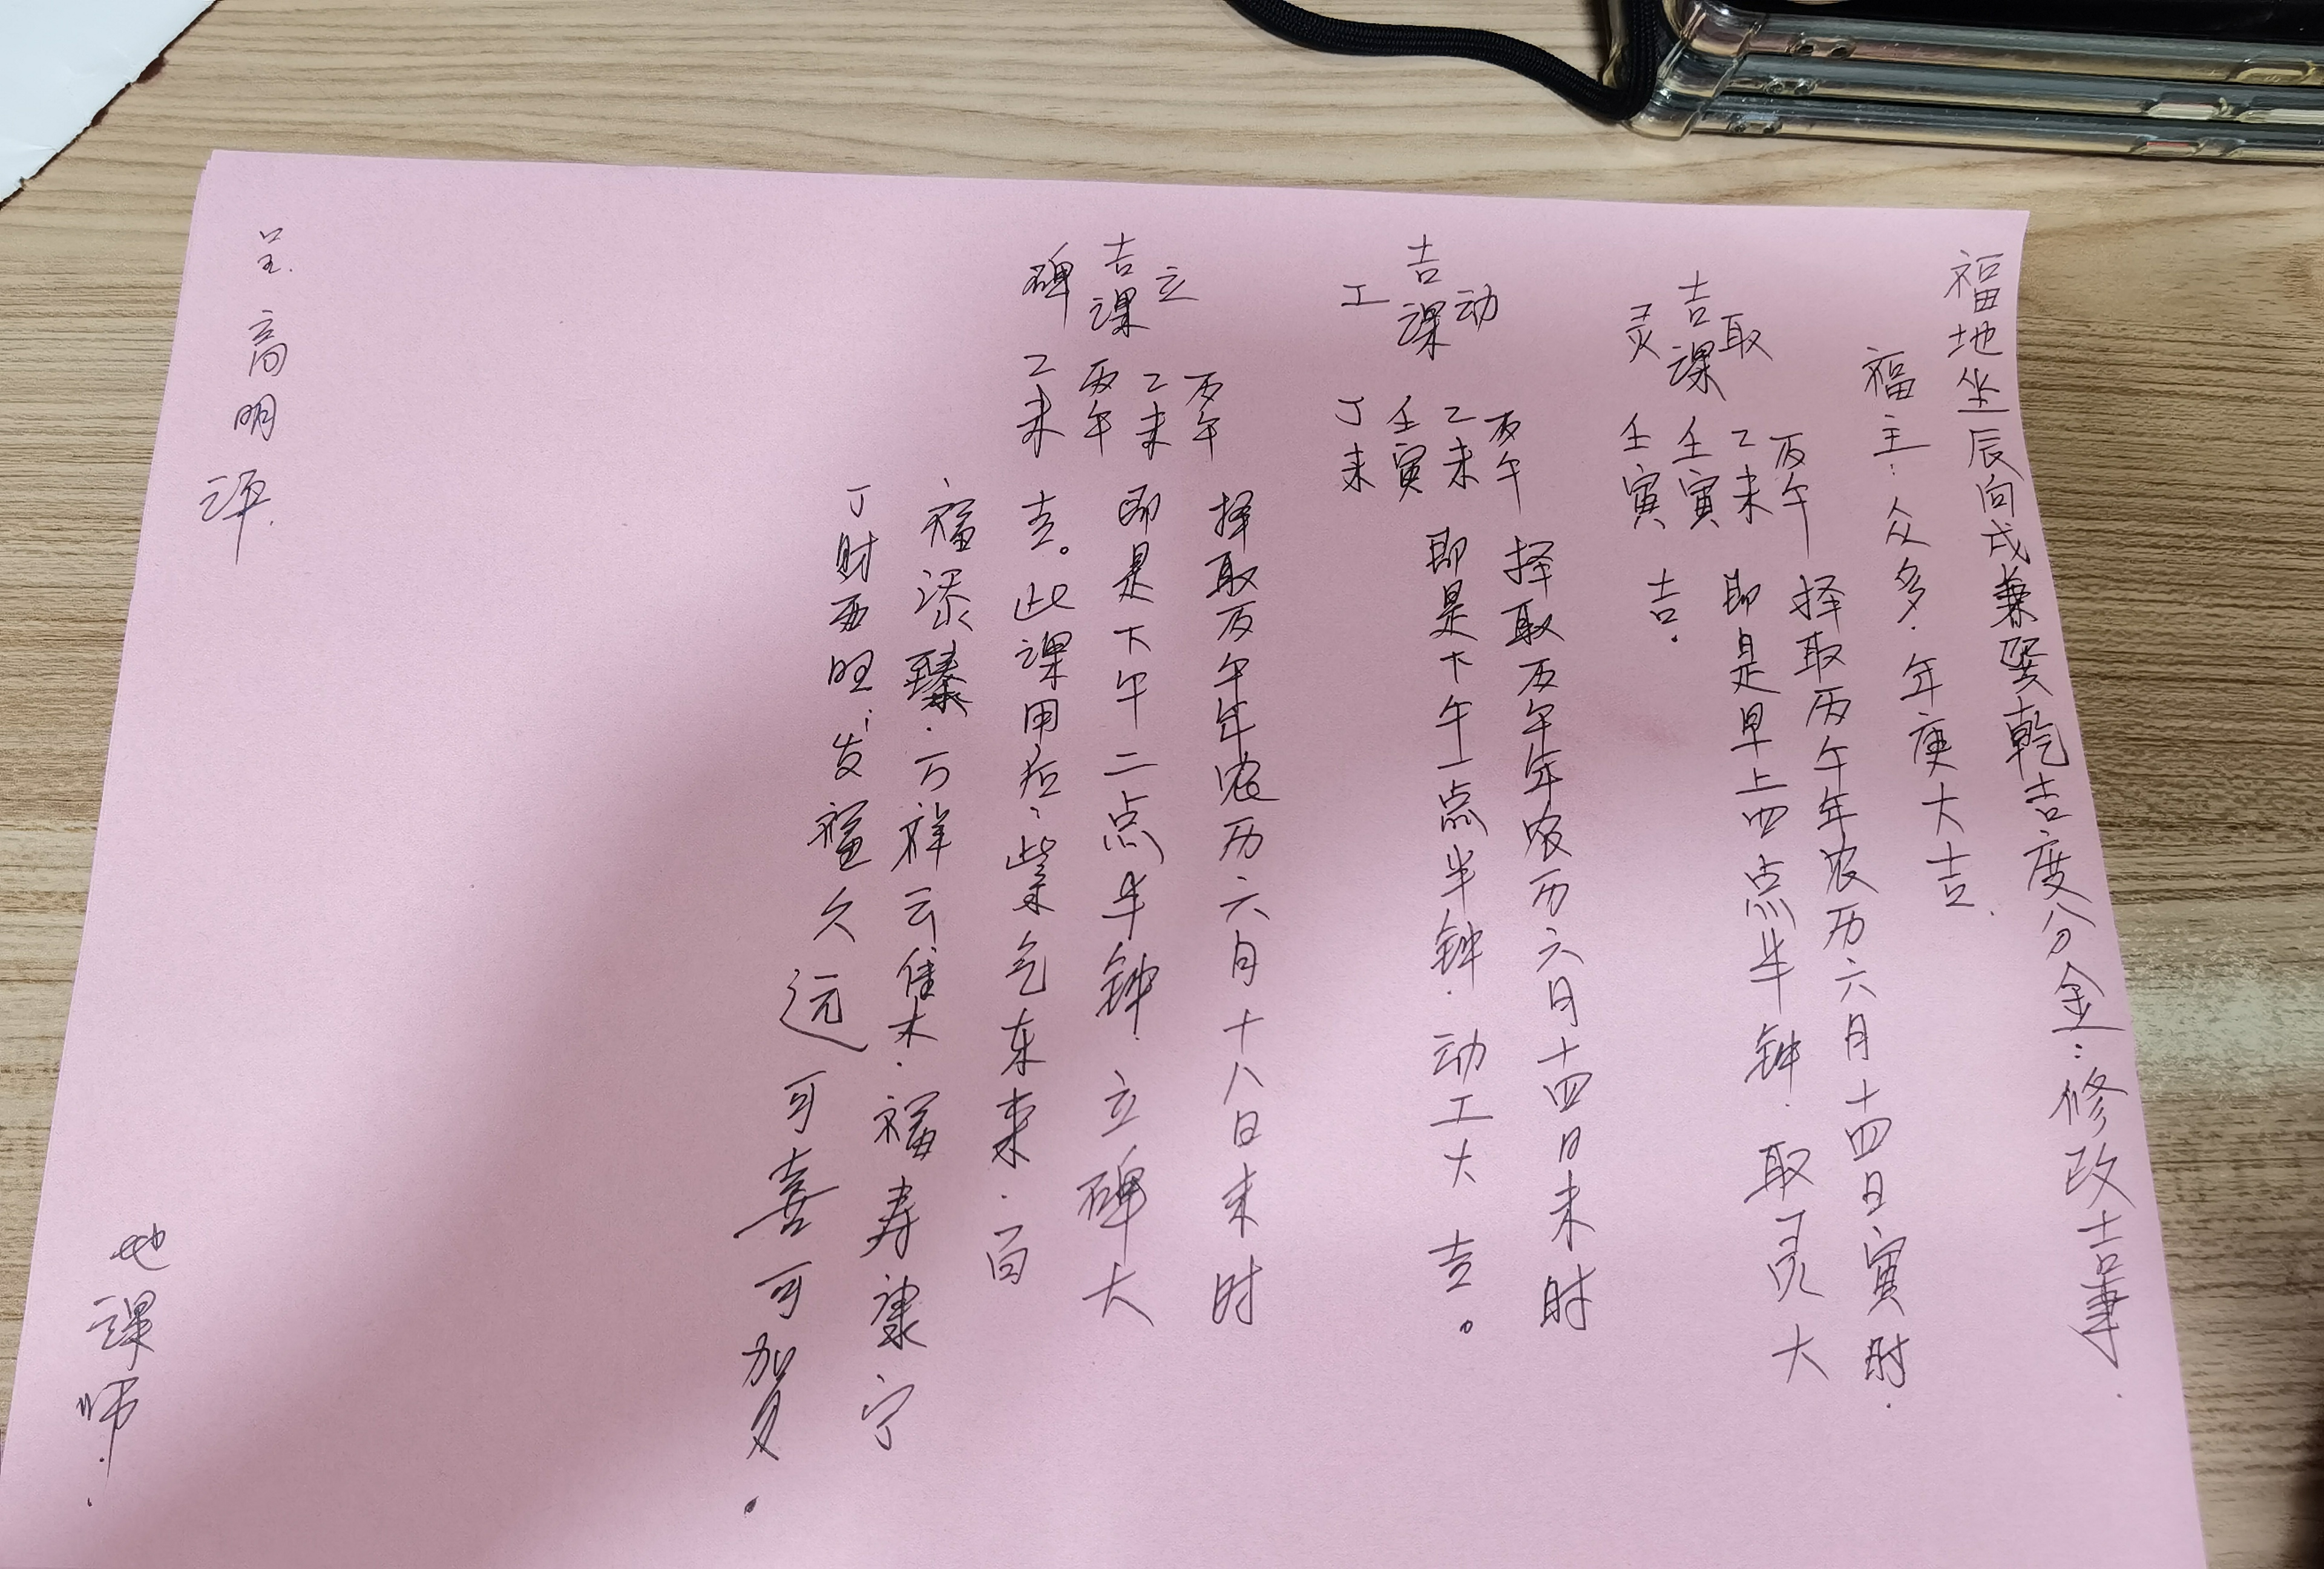 福地坐辰向戌兼巽乾吉度分金：修改吉事.
福主：众多.年庚大吉.
取
吉课
灵
丙午
乙未
壬寅
壬寅
择取丙午年农历六月十四日寅时.
即是早上四点半钟.取灵大
吉.
动
吉课
工
丙午
乙未
壬寅
丁未
择取丙午年农历六月十四日未时
即是下午一点半钟.动工大吉。
立
吉课
碑
丙午
乙未
丙午
乙未
择取丙午年农历六月十八日未时
即是下午二点半钟.立碑大
吉。此课用后：紫气东来.百
福添臻.万祥云集.福寿康宁
丁财两旺：发福久远可喜可贺.
呈.高明评.
地课师.